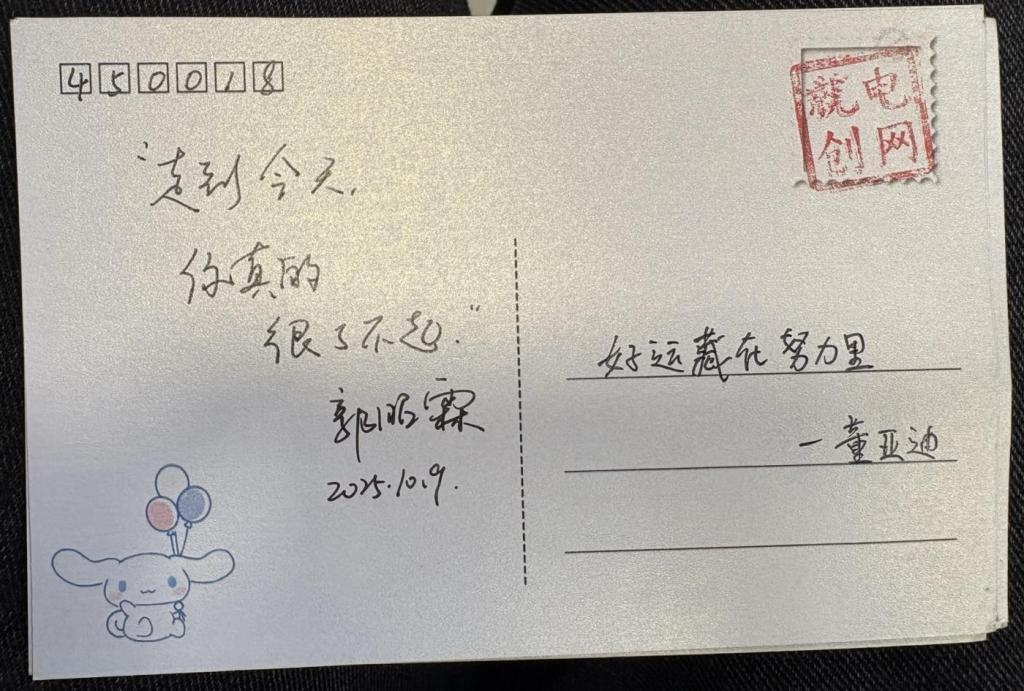 450018
"走到今天,
你真的
很了不起."
郭昭霖
2025.10.9.
电网
创
好运藏在努力里
一董亚迪